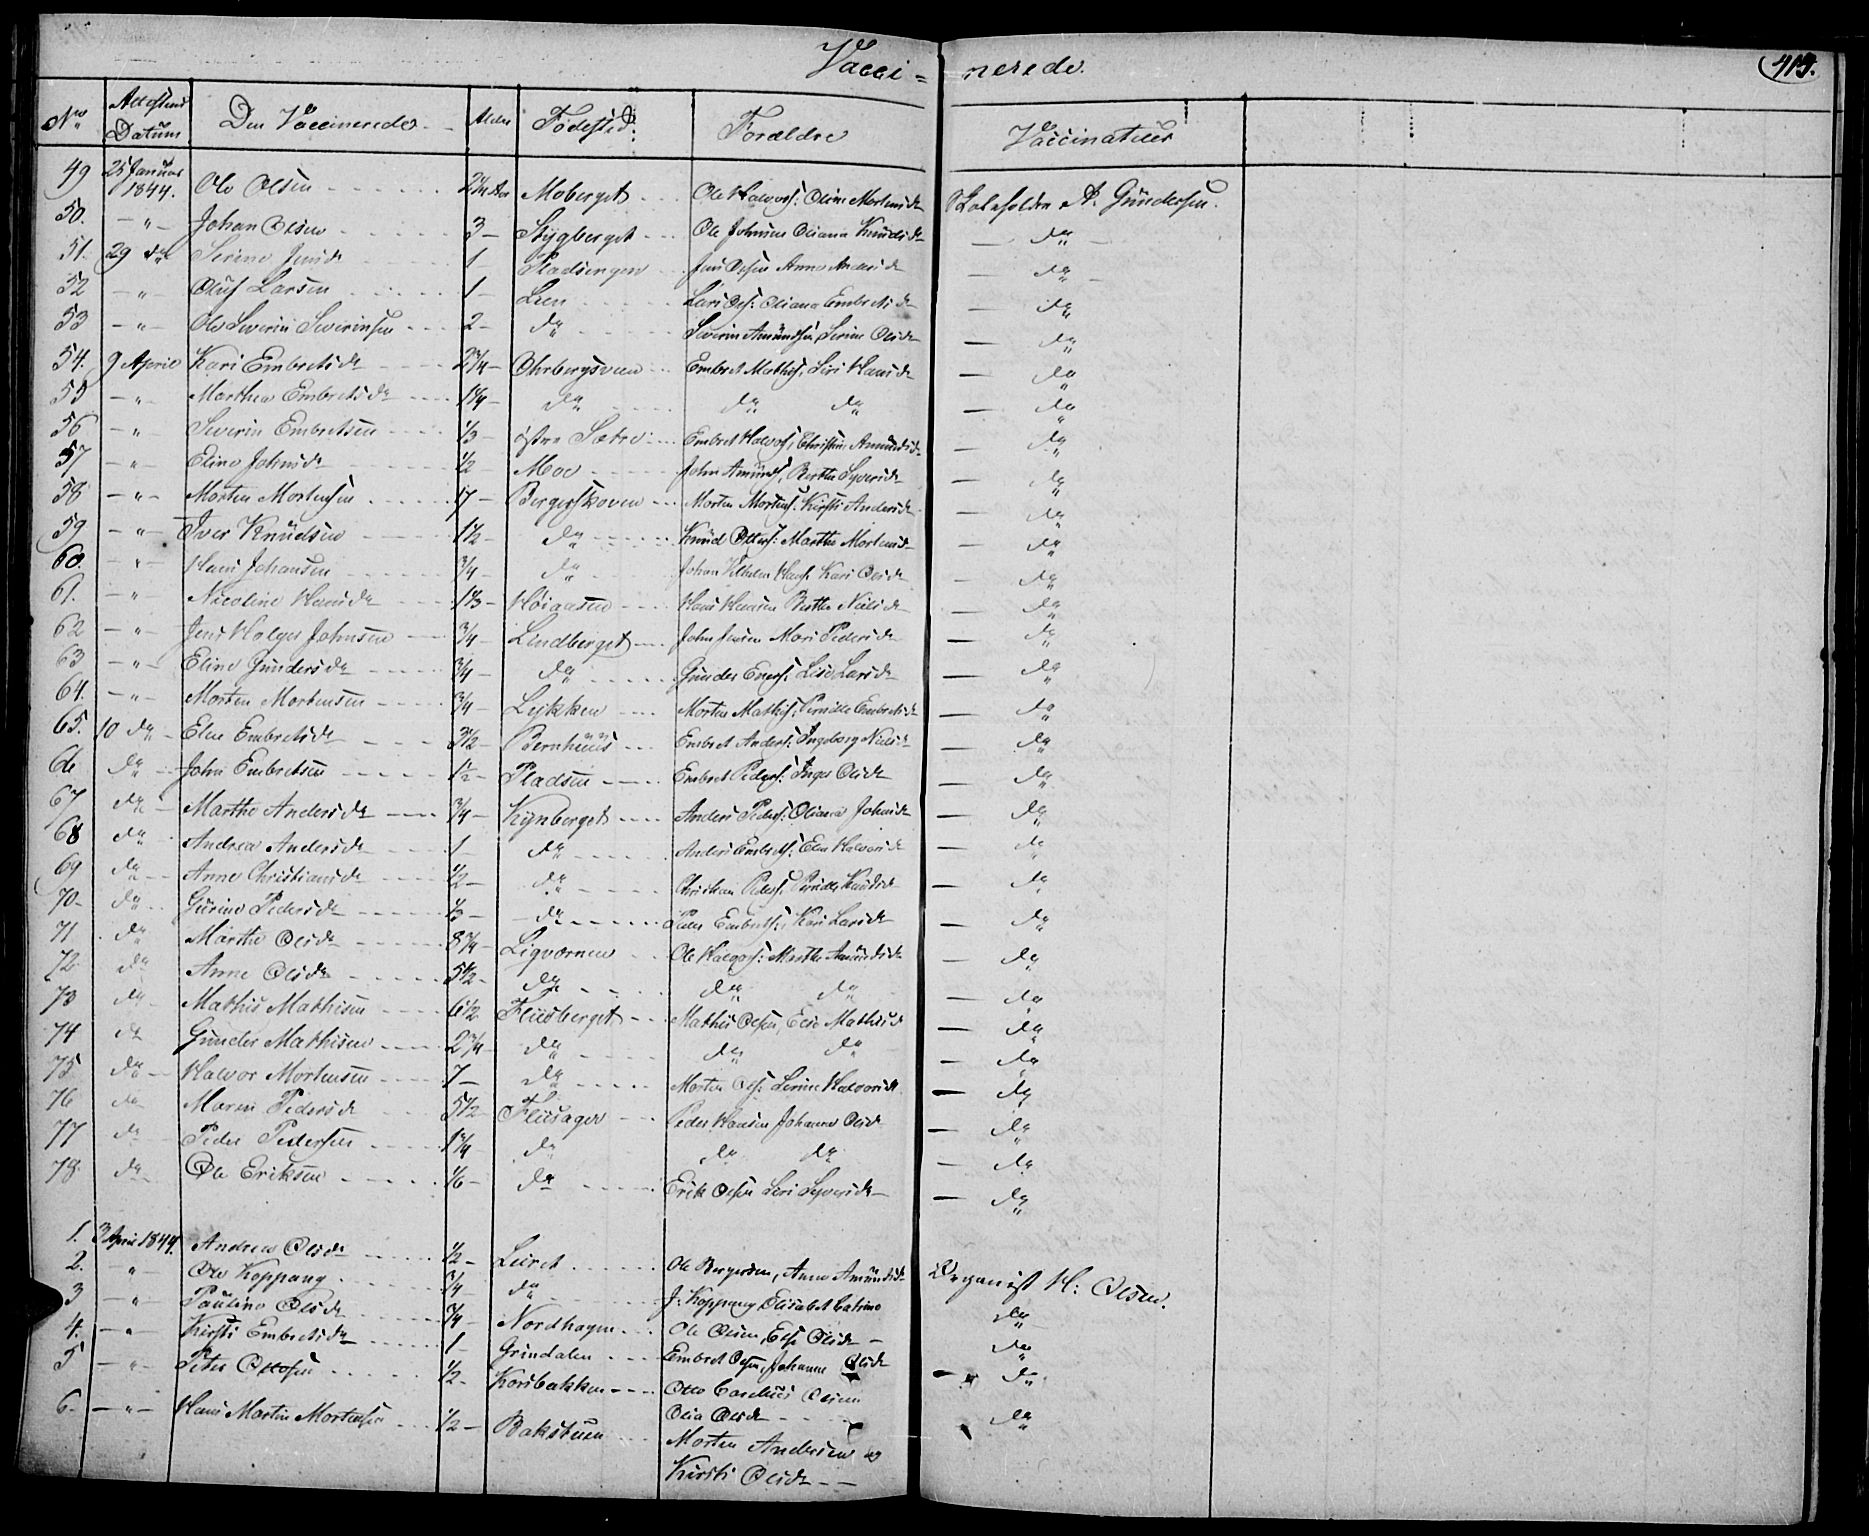 Vacci = nerede.
415.
No Attestens Datum Den Vaccinerede Alder Fødested. Forældre Vaccinateur
49 25 Januar 1844. Ole Olsen 2 1/4 Aar Moberget Ole Halvors: Oline Mortensdr Skoleholder A. Gundersen.
50. - " - Johan Olsen 3 - Stygberget Ole Johnsen Oliana Knudsdr - do -
51. 29 do Serine Jensdr 1 - Pladsengen Jens Olsen Anne Andersdr - do -
52 - " - Oluf Larsen 1 - Lien Lars Ols: Oliana Embretsdr - do
53 - " - Ole Severin Severinsen 2 - do Severin Amundsen, Serine Olsdr - do
54. 9 April Kari Embretsdr 2 3/4 - Ohrbergsveen Embret Mathis: Siri Hansdr - do
55 - " - Marthea Embretsdr 1 1/4 - do do do - do
56 - " - Severin Embretsen 1/3 - østre Sætre Embret Halvors: Christine Amundsdr - do
57 - " - Eline Johnsdr 1/2 - Moe John Amunds, Berthe Syversdr - do
58 - " - Morten Mortensen 17 - Bergerskoven Morten Mortens: Kirsti Andersdr - do
59 - " - Iver Knudsen 1 1/2 - do Knud Otters: Marthe Mortensdr - do
60. - " - Hans Johansen 3/4 - do Johan Vilhelm Hans: Kari Olsdr - do
61. - " - Nicoline Hansdr 1 1/3 - Høiaasen Hans Hansen Berthe Nielsdr - do
62 - " - Jens Holger Johnsen 3/4 - Lindberget John Jensen Mari Pedersdr - do
63 - " - Eline Gundersdr 3/4 - do Gunder Eners: Lise Larsdr - do
64. - " - Morten Mortensen 3/4 - Løkken Morten Mathis: Pernille Embretsdr - do
65. 10 do - Eline Embretsdr 3 1/2 - Bernhuus Embret Anders: Ingeborg Nielsdr - do
66 do John Embretsen 1 1/2 - Pladsen Embret Peders: Inger Olsdr - do
67 do Marthe Andersdr 3/4 - Kynberget Anders Peders: Oliana Johnsdr - do
68 do Andrea Andersdr 1 do Anders Embrets: Elen Halvorsdr - do
69 do Anne Christiansdr 1/2 - do Christian Peders: Pernille Knudsdr - do
70 - do Gurine Pedersdr 1/3 - do Peder Embrets, Kari Larsdr - do
71 do Marthe Olsdr 8 3/4 - Ligvornen Ole Halvors: Marthe Amundsdr - do
72 do Anne Olsdr 5 1/2 - do do do - do
73 do Mathis Mathisen 6 1/2 Fliisberget Mathis Olsen, Elie Mathisdr - do
74 do Gunder Mathisen 2 3/4 - do do do - do
75 do - Halvor Mortensen 7 - do Morten Ols: Serine Halvorsdr - do
76 do Maren Pedersdr 5 1/2 Fliisager Peder Hansen Johanne Olsdr - do
77 do Peder Pedersen 1 3/4 do do do - do
78. do Ole Eriksen 1/6 - do Erik Olsen Siri Syversdr - do
1. 3 April 1844. Andrea Olsdr 1/2 - Leiret Ole Bergersen, Anne Amundsdr Organist H: Olsen.
2. - " - Ole Koppang 3/4 - do J: Koppang Elisabet Catrine do
3 - " - Pauline Olsdr 3/4 - Nordhagen Ole Olsen, Else Olsdr - do
4. - " - Kirsti Embretsdr 1 - Grindalen Embret Olsen, Johanne Olsdr - do
5 - " - Peter Ottosen 1/2 - Korsbakken Otto Carelius Olsen
Olea Olsdr do
6 - - " - Hans Martin Mortensen 1/2 - Bakstuen Morten Andersen og
Kirsti Olsdr -